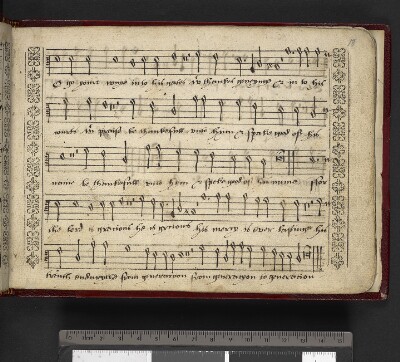 O go your wayes into his gates wt thankes geveynge & in to his
courts wt prayse be thankefull unto hym & speke good of his
name be thankefull unto hym & speke good of his name for
the lord is gracious he is gracious his mercy is ever lastynge his
treuth endureth from generatyon from generatyon to generation